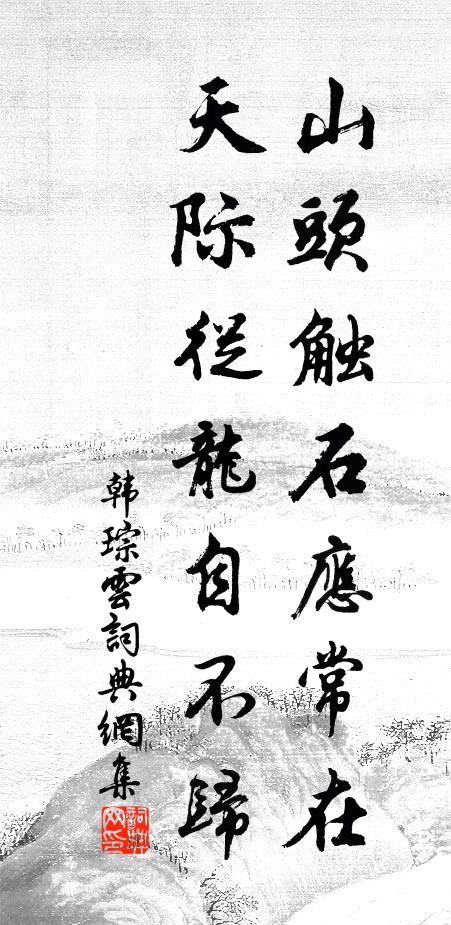 山頭触石應常在
天际從龍自不歸
韩琮雲詞典網集